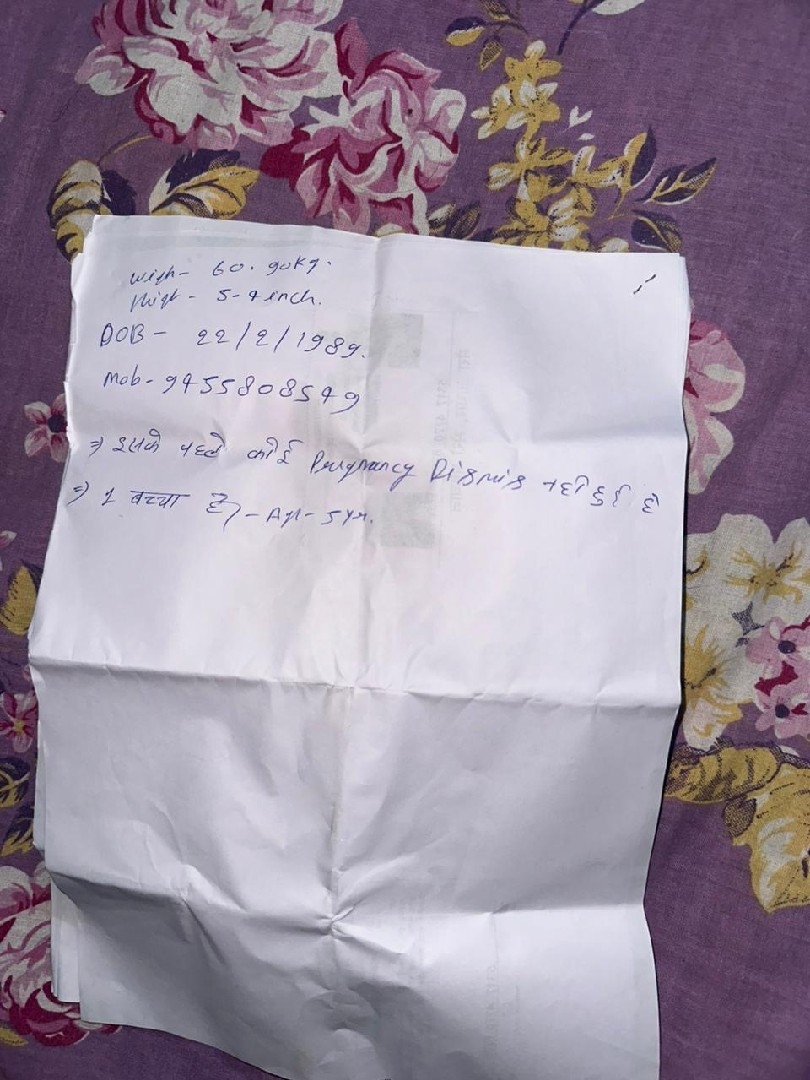 weigh - 60.90Kg.
Heigh - 5-4 inch.
DOB - 22/2/1989.
Mob - 9455808549
⇒ इसके पहले कोई Pregnancy Dismis नहीं हुई है
⇒ 1 बच्चा है, - Age - 5 yr.